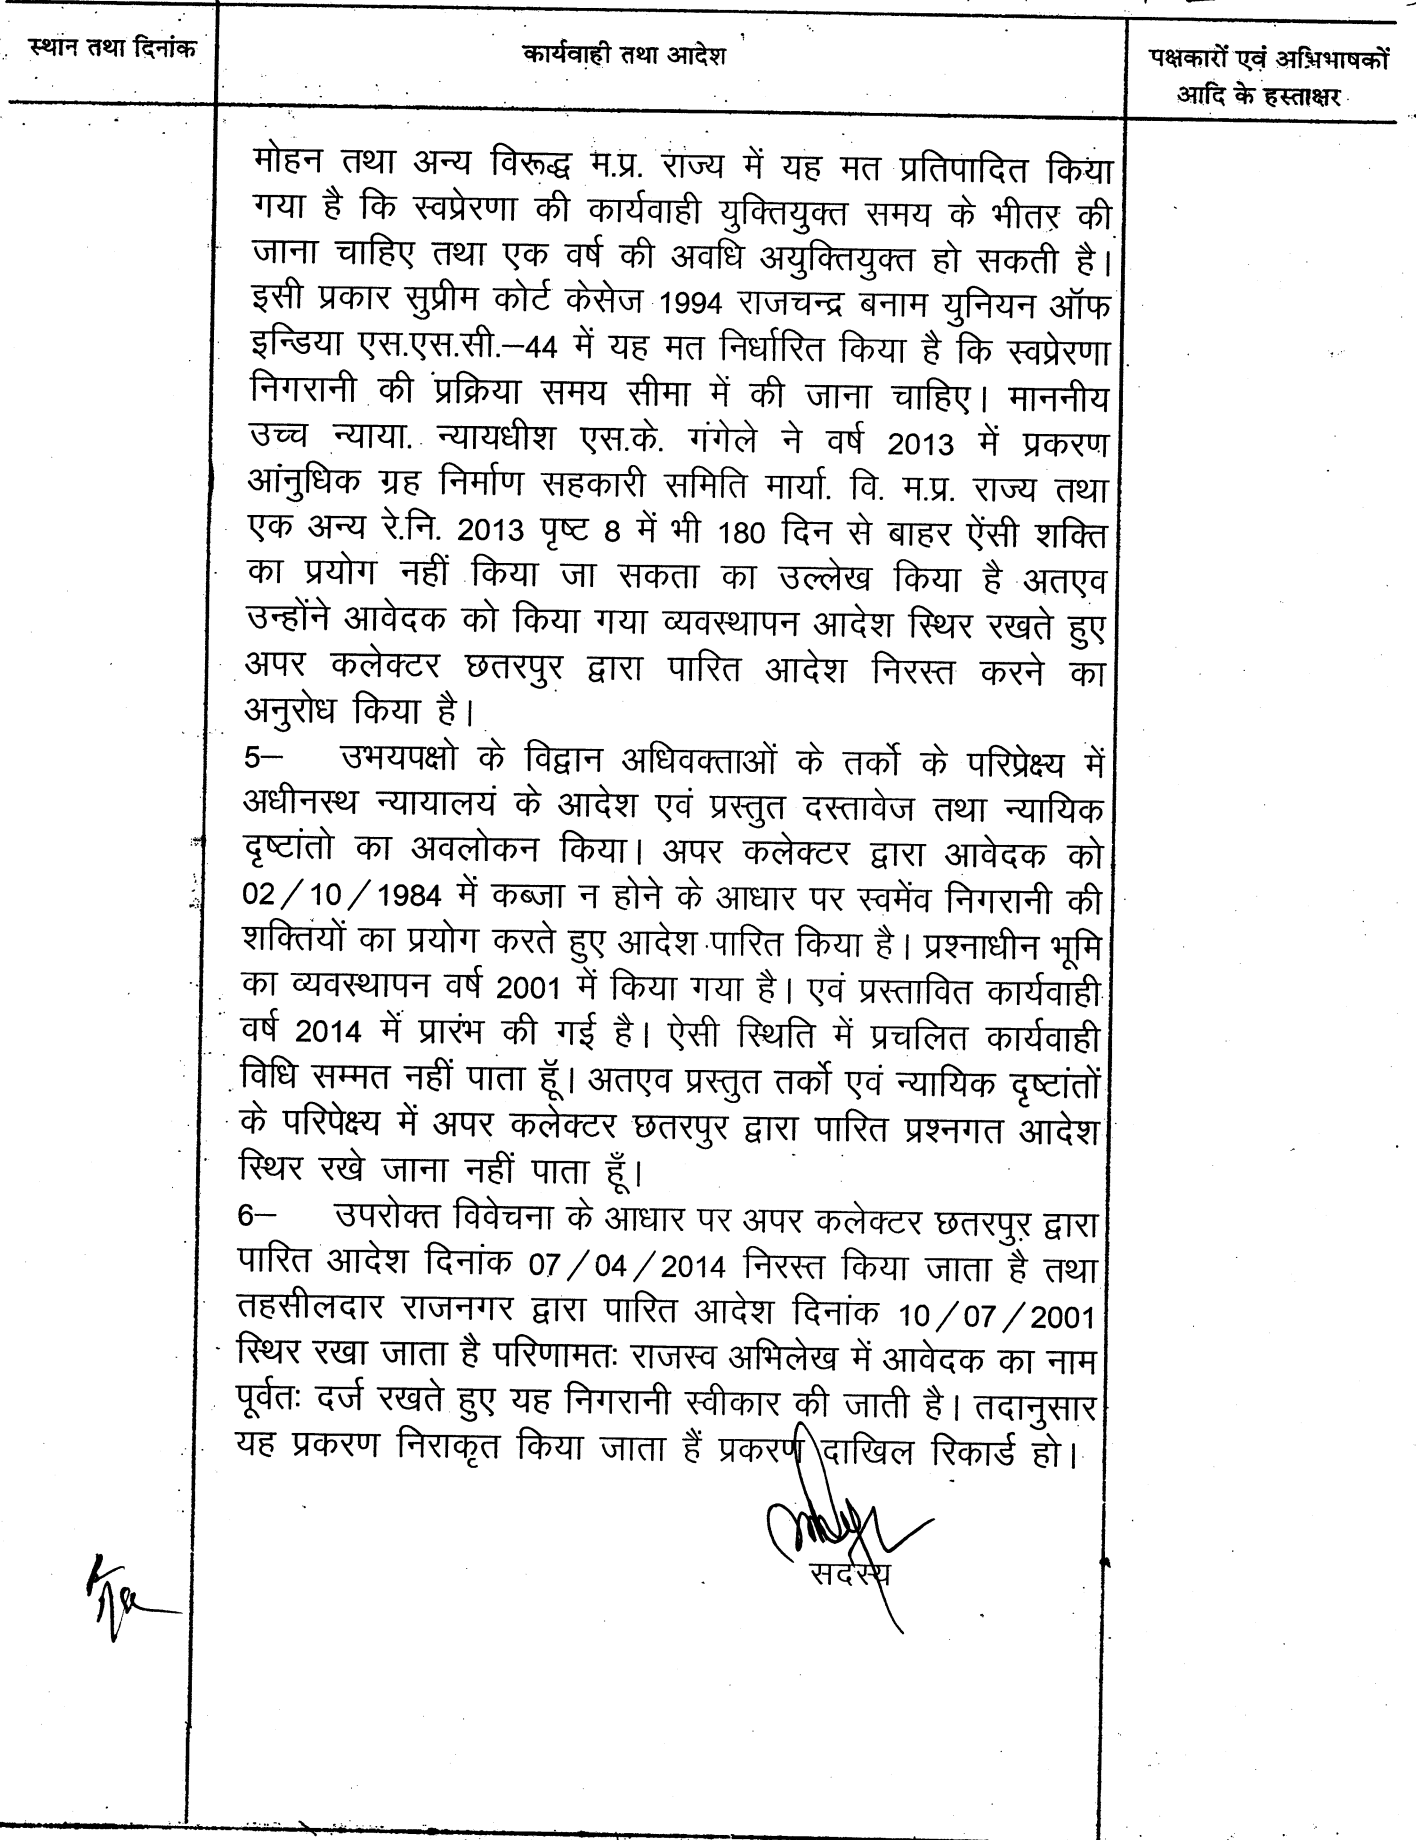 स्थान तथा दिनांक
कार्यवाही तथा आदेश
पक्षकारों एवं अभिभाषकों
आदि के हस्ताक्षर
मोहन तथा अन्य विरूद्ध म.प्र. राज्य में यह मत प्रतिपादित किया
गया है कि स्वप्रेरणा की कार्यवाही युक्तियुक्त समय के भीतर की
जाना चाहिए तथा एक वर्ष की अवधि अयुक्तियुक्त हो सकती है।
इसी प्रकार सुप्रीम कोर्ट केसेज 1994 राजचन्द्र बनाम युनियन ऑफ
इन्डिया एस.एस.सी.–44 में यह मत निर्धारित किया है कि स्वप्रेरणा
निगरानी की प्रक्रिया समय सीमा में की जाना चाहिए। माननीय
उच्च न्याया. न्यायधीश एस.के. गंगेले ने वर्ष 2013 में प्रकरण
आंनुधिक ग्रह निर्माण सहकारी समिति मार्या. वि. म.प्र. राज्य तथा
एक अन्य रे.नि. 2013 पृष्ट 8 में भी 180 दिन से बाहर ऐंसी शक्ति
का प्रयोग नहीं किया जा सकता का उल्लेख किया है अतएव
उन्होंने आवेदक को किया गया व्यवस्थापन आदेश स्थिर रखते हुए
अपर कलेक्टर छतरपुर द्वारा पारित आदेश निरस्त करने का
अनुरोध किया है।
5– उभयपक्षो के विद्वान अधिवक्ताओं के तर्को के परिप्रेक्ष्य में
अधीनस्थ न्यायालयं के आदेश एवं प्रस्तुत दस्तावेज तथा न्यायिक
दृष्टांतो का अवलोकन किया। अपर कलेक्टर द्वारा आवेदक को
02/10/1984 में कब्जा न होने के आधार पर स्वमेंव निगरानी की
शक्तियों का प्रयोग करते हुए आदेश पारित किया है। प्रश्नाधीन भूमि
का व्यवस्थापन वर्ष 2001 में किया गया है। एवं प्रस्तावित कार्यवाही
वर्ष 2014 में प्रारंभ की गई है। ऐसी स्थिति में प्रचलित कार्यवाही
विधि सम्मत नहीं पाता हॅू। अतएव प्रस्तुत तर्को एवं न्यायिक दृष्टांतों
के परिपेक्ष्य में अपर कलेक्टर छतरपुर द्वारा पारित प्रश्नगत आदेश
स्थिर रखे जाना नहीं पाता हूँ।
6– उपरोक्त विवेचना के आधार पर अपर कलेक्टर छतरपुर द्वारा
पारित आदेश दिनांक 07/04/2014 निरस्त किया जाता है तथा
तहसीलदार राजनगर द्वारा पारित आदेश दिनांक 10/07/2001
स्थिर रखा जाता है परिणामतः राजस्व अभिलेख में आवेदक का नाम
पूर्वतः दर्ज रखते हुए यह निगरानी स्वीकार की जाती है। तदानुसार
यह प्रकरण निराकृत किया जाता हैं प्रकरण दाखिल रिकार्ड हो।
सदस्य